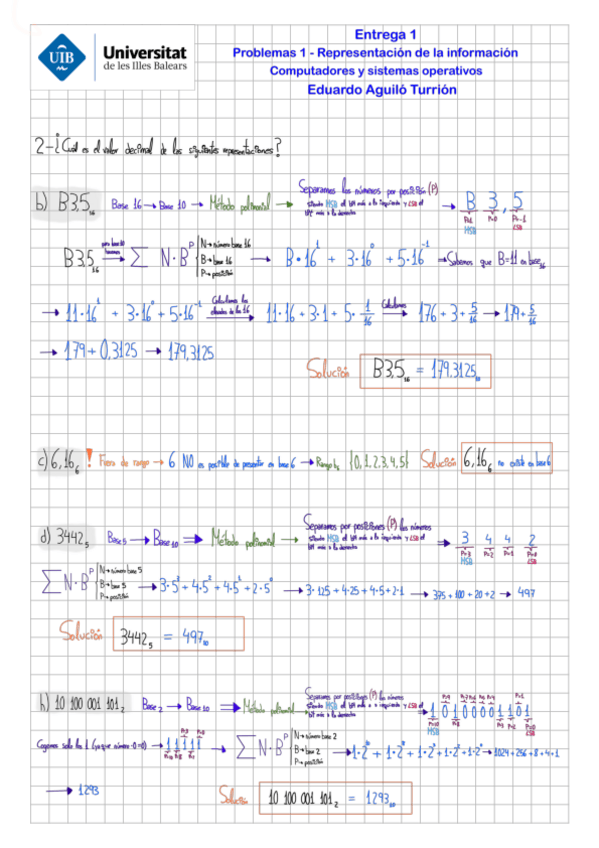 Entrega 1
Problemas 1 - Representación de la información
Computadores y sistemas operativos
Eduardo Aguiló Turrión
UIB
Universitat
de les Illes Balears
2-¿Cuál es el valor decimal de las siguientes representaciones?
b) B3,5₁₆ Base 16 → Base 10 → Método polinomial → Separamos los números por posición (P) siendo MSB el bit más a la izquierda y LSB el bit más a la derecha → B 3 , 5
P=1 P=0 P=-1
MSB LSB
B3,5₁₆ → ∑ N·Bᴾ N→número base 16 B→base 16 P→posición → B·16¹ + 3·16⁰ + 5·16⁻¹ → Sabemos que B=11 en base₁₆
→ 11·16¹ + 3·16⁰ + 5·16⁻¹ → 11·16 + 3·1 + 5·1/16 Calculamos → 176 + 3 + 5/16 → 179 + 5/16
→ 179 + 0,3125 → 179,3125
Solución B3,5₁₆ = 179,3125₁₀
c) 6,16₆ ! Fuera de rango → 6 NO es posible de presentar en base 6 → Rango b₆ {0,1,2,3,4,5} Solución 6,16₆ no existe en base 6
d) 3442₅ Base 5 → Base 10 ⇒ Método polinomial → Separamos por posiciones (P) los números siendo MSB el bit más a la izquierda y LSB el bit más a la derecha → 3 4 4 2
P=3 P=2 P=1 P=0
MSB LSB
∑ N·Bᴾ N→número base 5 B→base 5 P→posición → 3·5³ + 4·5² + 4·5¹ + 2·5⁰ → 3·125 + 4·25 + 4·5 + 2·1 → 375 + 100 + 20 + 2 → 497
Solución 3442₅ = 497₁₀
h) 10 100 001 101₂ Base 2 → Base 10 ⇒ Método polinomial → Separamos por posiciones (P) los números siendo MSB el bit más a la izquierda y LSB el bit más a la derecha → 1 0 1 0 0 0 0 1 1 0 1
Cogemos solo los 1 (ya que número·0=0) → 1 1 1 1 1 → ∑ N·Bᴾ N→número base 2 B→base 2 P→posición → 1·2¹⁰ + 1·2⁸ + 1·2³ + 1·2² + 1·2⁰ → 1024 + 256 + 8 + 4 + 1
→ 1293
Solución 10 100 001 101₂ = 1293₁₀